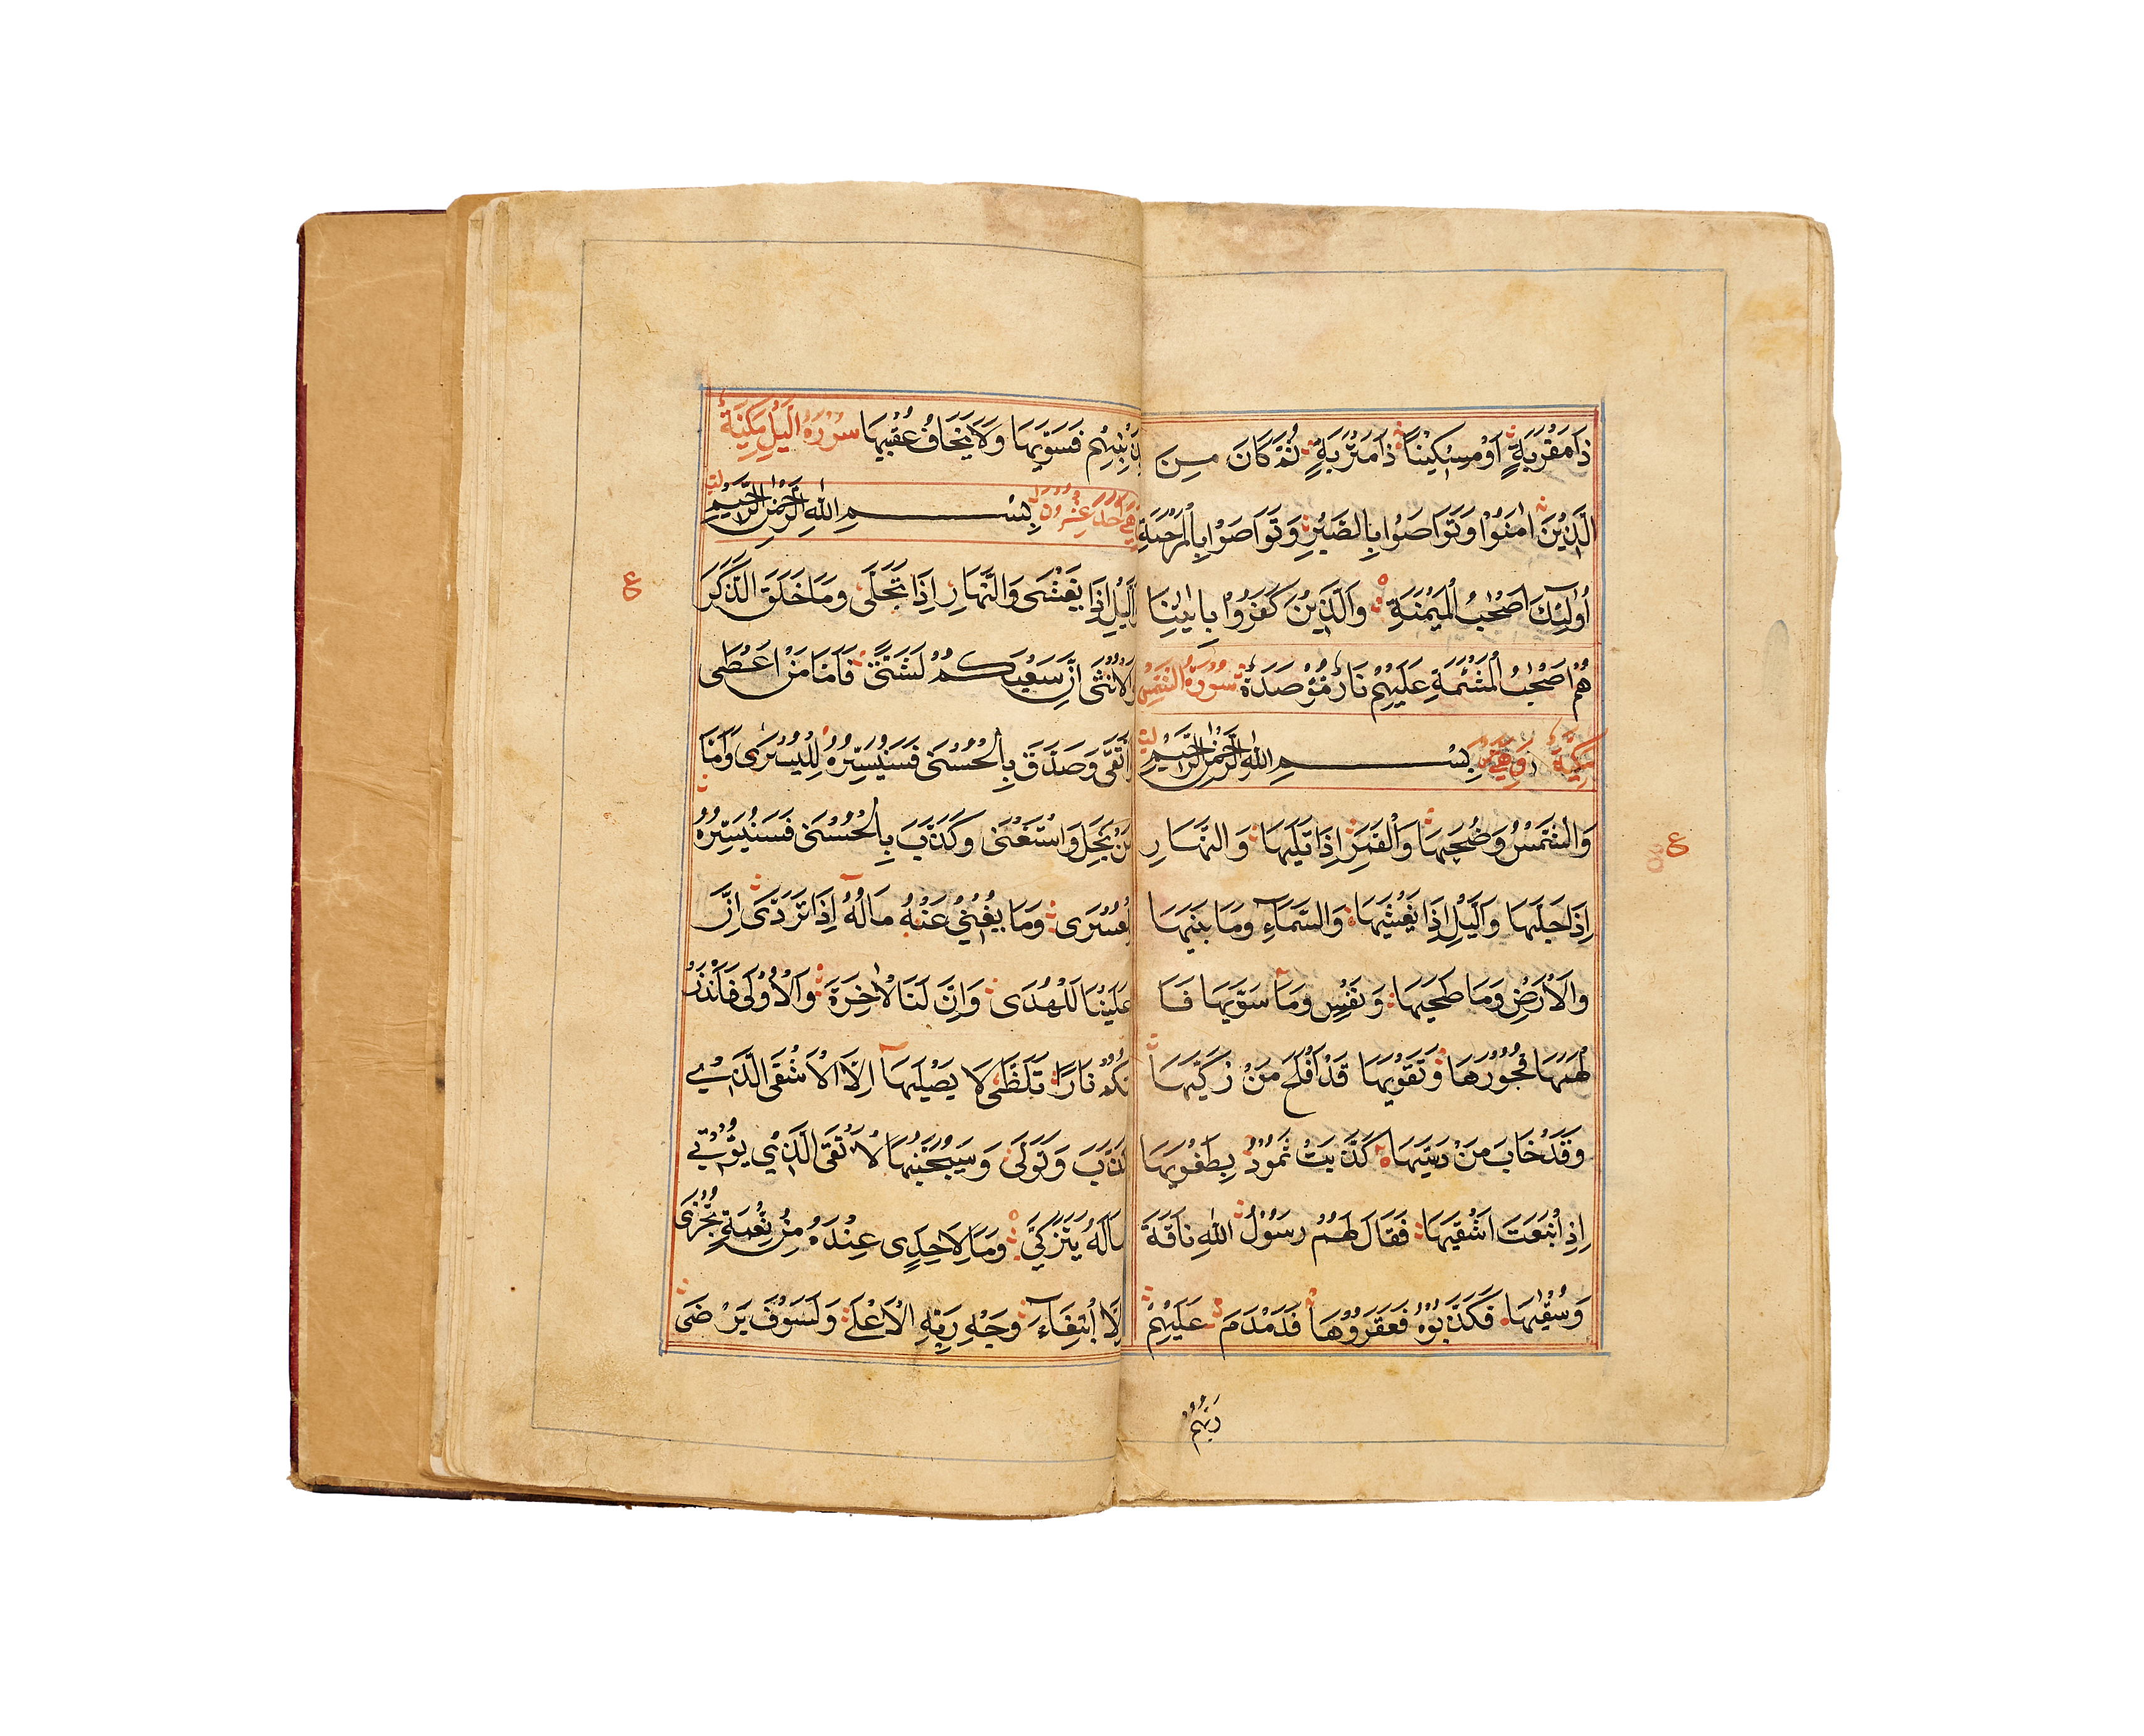 ذَا مَقْرَبَةٍ اَوْ مِسْكِيْنًا ذَا مَتْرَبَةٍ ثُمَّ كَانَ مِنَ
الَّذِيْنَ اٰمَنُوْا وَتَوَاصَوْا بِالصَّبْرِ وَتَوَاصَوْا بِالْمَرْحَمَةِ
اُولٰئِكَ اَصْحٰبُ الْمَيْمَنَةِ وَالَّذِيْنَ كَفَرُوْا بِاٰيٰتِنَا
هُمْ اَصْحٰبُ الْمَشْئَمَةِ عَلَيْهِمْ نَارٌ مُؤْصَدَةٌ سُوْرَةُ الشَّمْسِ
مَكِّيَّةٌ وَهِيَ بِسْمِ اللهِ الرَّحْمٰنِ الرَّحِيْمِ
وَالشَّمْسِ وَضُحٰيهَا وَالْقَمَرِ اِذَا تَلٰيهَا وَالنَّهَارِ
اِذَا جَلّٰيهَا وَالَّيْلِ اِذَا يَغْشٰيهَا وَالسَّمَآءِ وَمَا بَنٰيهَا
وَالْاَرْضِ وَمَا طَحٰيهَا وَنَفْسٍ وَمَا سَوّٰيهَا فَاَ
لْهَمَهَا فُجُوْرَهَا وَتَقْوٰيهَا قَدْ اَفْلَحَ مَنْ زَكّٰيهَا
وَقَدْ خَابَ مَنْ دَسّٰيهَا كَذَّبَتْ ثَمُوْدُ بِطَغْوٰيهَا
اِذِ انْبَعَثَ اَشْقٰيهَا فَقَالَ لَهُمْ رَسُوْلُ اللهِ نَاقَةَ
وَسُقْيٰهَا فَكَذَّبُوْهُ فَعَقَرُوْهَا فَدَمْدَمَ عَلَيْهِمْ
رَبُّهُمْ
ع
بِذَنْبِهِمْ فَسَوّٰيهَا وَلَا يَخَافُ عُقْبٰيهَا سُوْرَةُ الَّيْلِ مَكِّيَّةٌ
وَهِيَ اِحْدٰى عِشْرُوْنَ بِسْمِ اللهِ الرَّحْمٰنِ الرَّحِيْمِ
وَالَّيْلِ اِذَا يَغْشٰى وَالنَّهَارِ اِذَا تَجَلّٰى وَمَا خَلَقَ الذَّكَرَ
وَالْاُنْثٰى اِنَّ سَعْيَكُمْ لَشَتّٰى فَاَمَّا مَنْ اَعْطٰى
وَاتَّقٰى وَصَدَّقَ بِالْحُسْنٰى فَسَنُيَسِّرُهُ لِلْيُسْرٰى وَاَمَّا
مَنْ بَخِلَ وَاسْتَغْنٰى وَكَذَّبَ بِالْحُسْنٰى فَسَنُيَسِّرُهُ
لِلْعُسْرٰى وَمَا يُغْنِيْ عَنْهُ مَالُهُ اِذَا تَرَدّٰى اِنَّ
عَلَيْنَا لَلْهُدٰى وَاِنَّ لَنَا لَلْاٰخِرَةَ وَالْاُوْلٰى فَاَنْذَرْ
تُكُمْ نَارًا تَلَظّٰى لَا يَصْلٰيهَا اِلَّا الْاَشْقَى الَّذِيْ
كَذَّبَ وَتَوَلّٰى وَسَيُجَنَّبُهَا الْاَتْقَى الَّذِيْ يُؤْتِيْ
مَالَهُ يَتَزَكّٰى وَمَا لِاَحَدٍ عِنْدَهُ مِنْ نِعْمَةٍ تُجْزٰى
اِلَّا ابْتِغَآءَ وَجْهِ رَبِّهِ الْاَعْلٰى وَلَسَوْفَ يَرْضٰى
ع